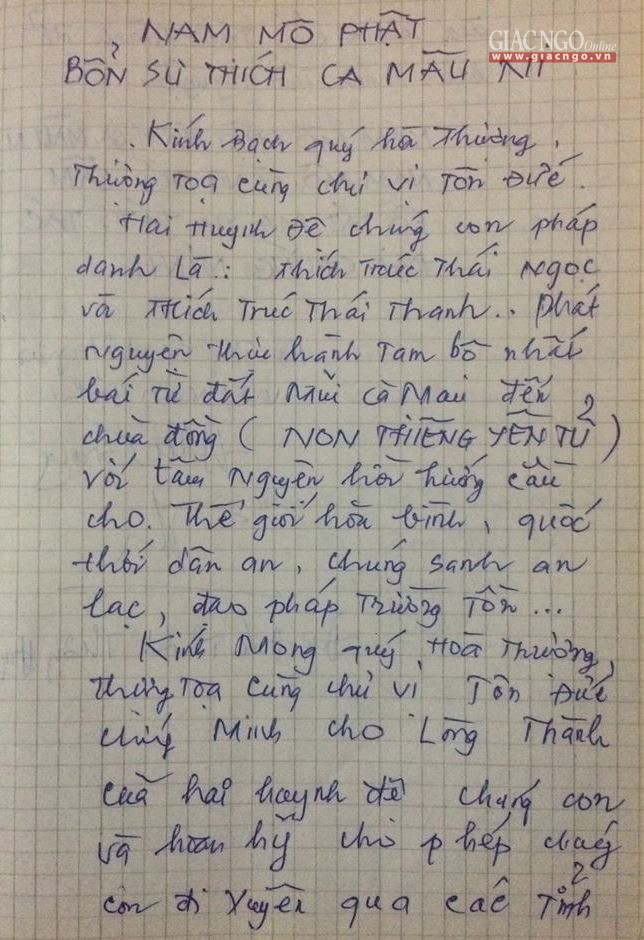 NAM MÔ PHẬT
GIACNGO Online
www.giacngo.vn
BỔN SƯ THÍCH CA MÂU NI
. Kính Bạch quý hòa Thượng,
Thượng Tọa cùng chư vị Tôn Đức.
Hai Huynh Đệ chúng con pháp
danh Là: Thích Trúc Thái Ngọc
và Thích Trúc Thái Thanh.. phát
Nguyện thực hành Tam bộ nhất
bái từ đất Mũi Cà Mau đến
chùa đồng ( NON THIÊNG YÊN TỬ )
với tâm Nguyện hồi hướng cầu
cho. Thế giới hòa bình, quốc
thới dân an, chúng sanh an
lạc, đạo pháp Trường Tồn...
Kính Mong quý Hoà Thượng,
Thượng Tọa Cùng chư vị Tôn Đức
chứng Minh cho Lòng Thành
của hai huynh đệ chúng con
và hoan hỷ cho phép chúng
con đi xuyên qua các Tỉnh